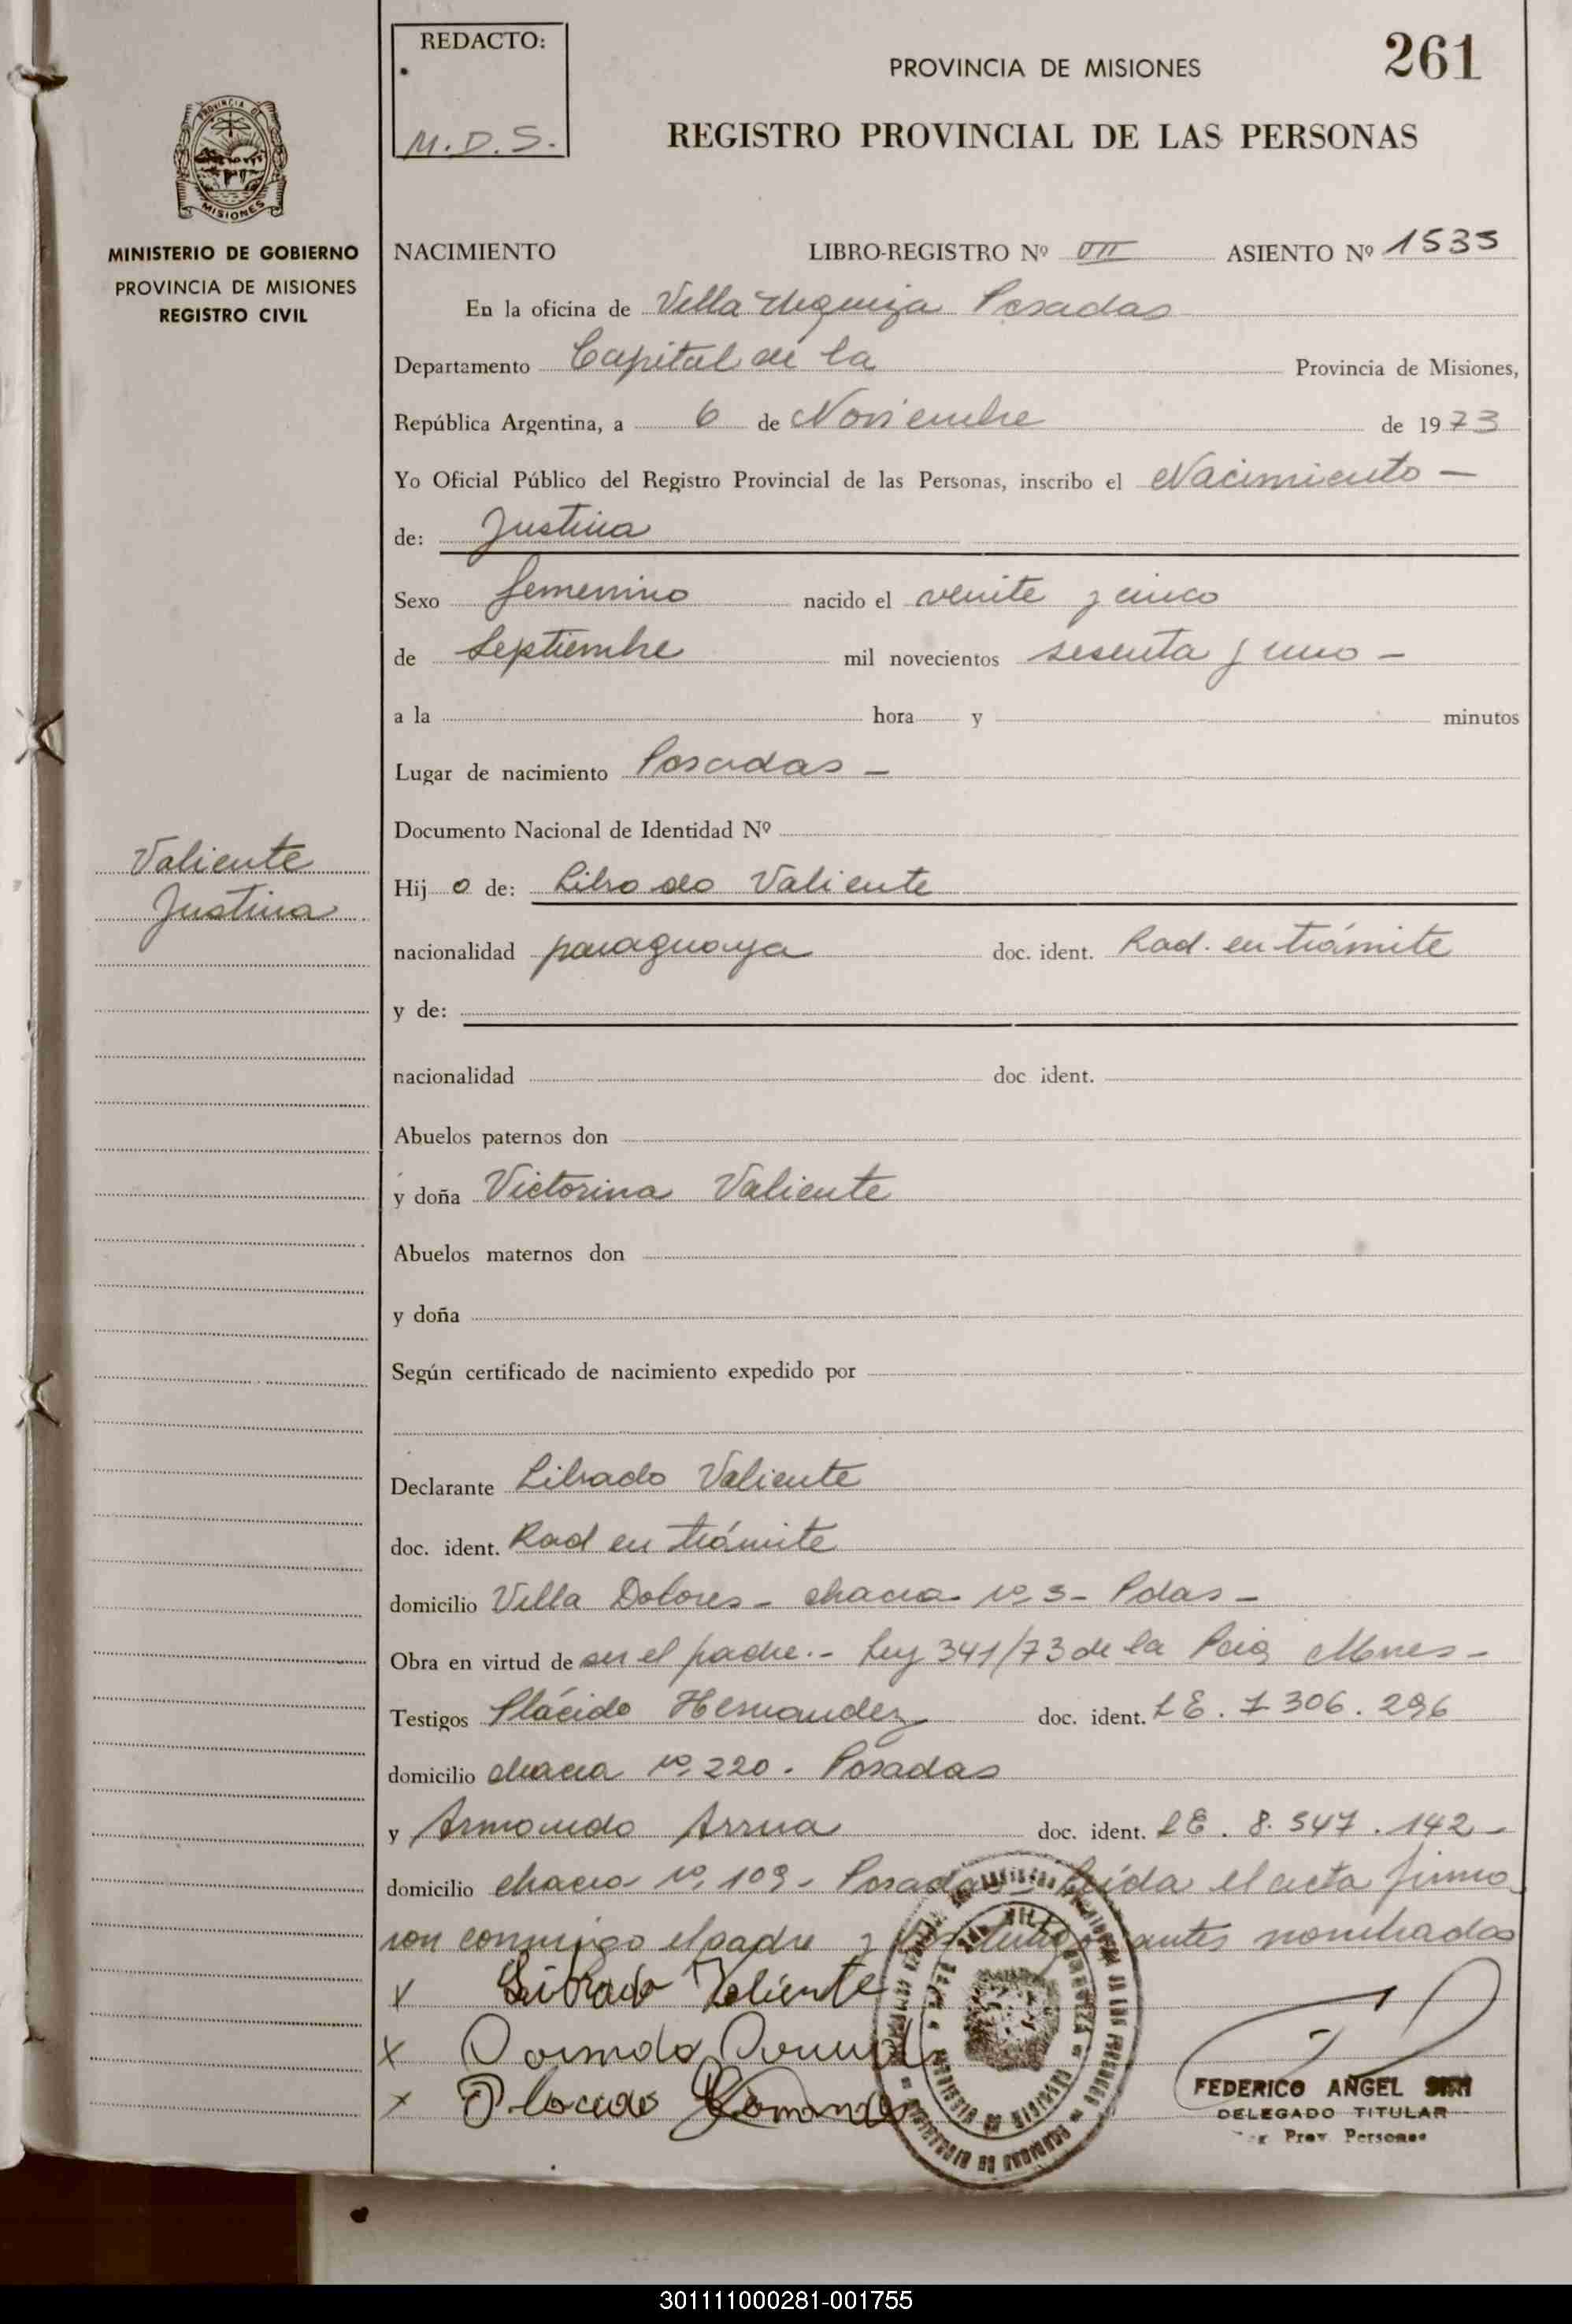 REDACTO:
M.D.S.
PROVINCIA DE MISIONES
261
REGISTRO PROVINCIAL DE LAS PERSONAS
PROVINCIA DE
MISIONES
MINISTERIO DE GOBIERNO
PROVINCIA DE MISIONES
REGISTRO CIVIL
NACIMIENTO LIBRO-REGISTRO Nº VII ASIENTO Nº 1535
En la oficina de Villa Urquiza Posadas
Departamento Capital de la Provincia de Misiones,
República Argentina, a 6 de Noviembre de 1973
Yo Oficial Público del Registro Provincial de las Personas, inscribo el Nacimiento —
de: Justina
Sexo femenino nacido el veinte y cinco
de Septiembre mil novecientos sesenta y uno —
a la hora y minutos
Lugar de nacimiento Posadas —
Documento Nacional de Identidad Nº
Valiente
Justina
Hij o de: Librado Valiente
nacionalidad paraguaya doc. ident. Rad. en trámite
y de:
nacionalidad doc ident.
Abuelos paternos don
y doña Victorina Valiente
Abuelos maternos don
y doña
Según certificado de nacimiento expedido por
Declarante Librado Valiente
doc. ident. Rad en trámite
domicilio Villa Dolores - chacra nº 3 - Pdas -
Obra en virtud de ser el padre.- Ley 341/73 de la Pcia Mnes -
Testigos Plácido Hernandez doc. ident. LE. 7.306.296
domicilio chacra nº 220. Posadas
y Armando Arrua doc. ident. LE. 8.547.142 -
domicilio chacra nº 109 - Posadas - Leída el acta firma
ron conmigo el padre y los testigos antes nombrados
x Librado Valiente
x
x Placido
FEDERICO ANGEL
DELEGADO TITULAR
Prov. Personas
301111000281-001755